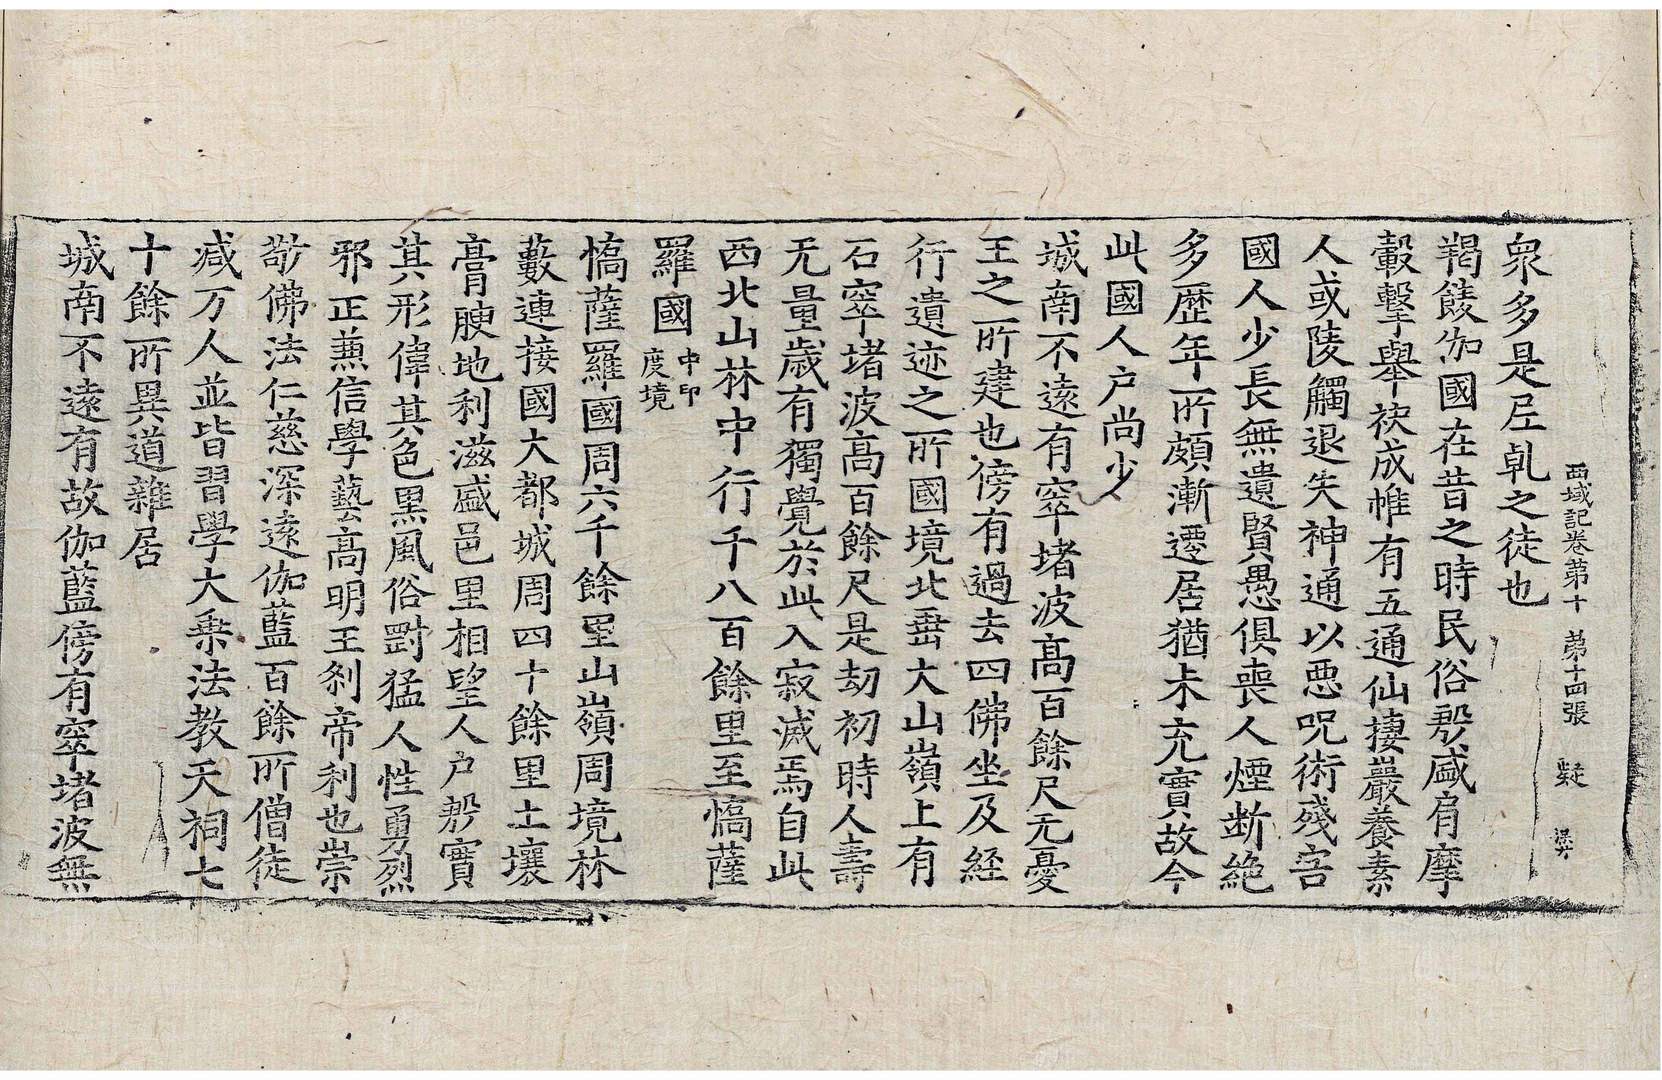 西域記卷第十 第十四張 疑
衆多是尼乹之徒也
羯𩜁伽國在昔之時民俗殷盛肩摩
轂擊舉袂成帷有五通仙棲巖養素
人或陵觸退失神通以惡呪術殘害
國人少長無遺賢愚俱喪人煙断絶
多歷年所頗漸遷居猶未充實故今
此國人户尚少
城南不遠有窣堵波高百餘尺无憂
王之所建也傍有過去四佛坐及經
行遺迹之所國境北垂大山嶺上有
石窣堵波高百餘尺是劫初時人壽
无量歲有獨覺於此入寂滅焉自此
西北山林中行千八百餘里至憍薩
羅國中印度境
憍薩羅國周六千餘里山嶺周境林
藪連接國大都城周四十餘里土壤
膏腴地利滋盛邑里相望人户殷實
其形偉其色黑風俗剛猛人性勇烈
邪正兼信學藝高明王刹帝利也崇
敬佛法仁慈深遠伽藍百餘所僧徒
减万人並皆習學大乗法教天祠七
十餘所異道雜居
城南不遠有故伽藍傍有窣堵波無